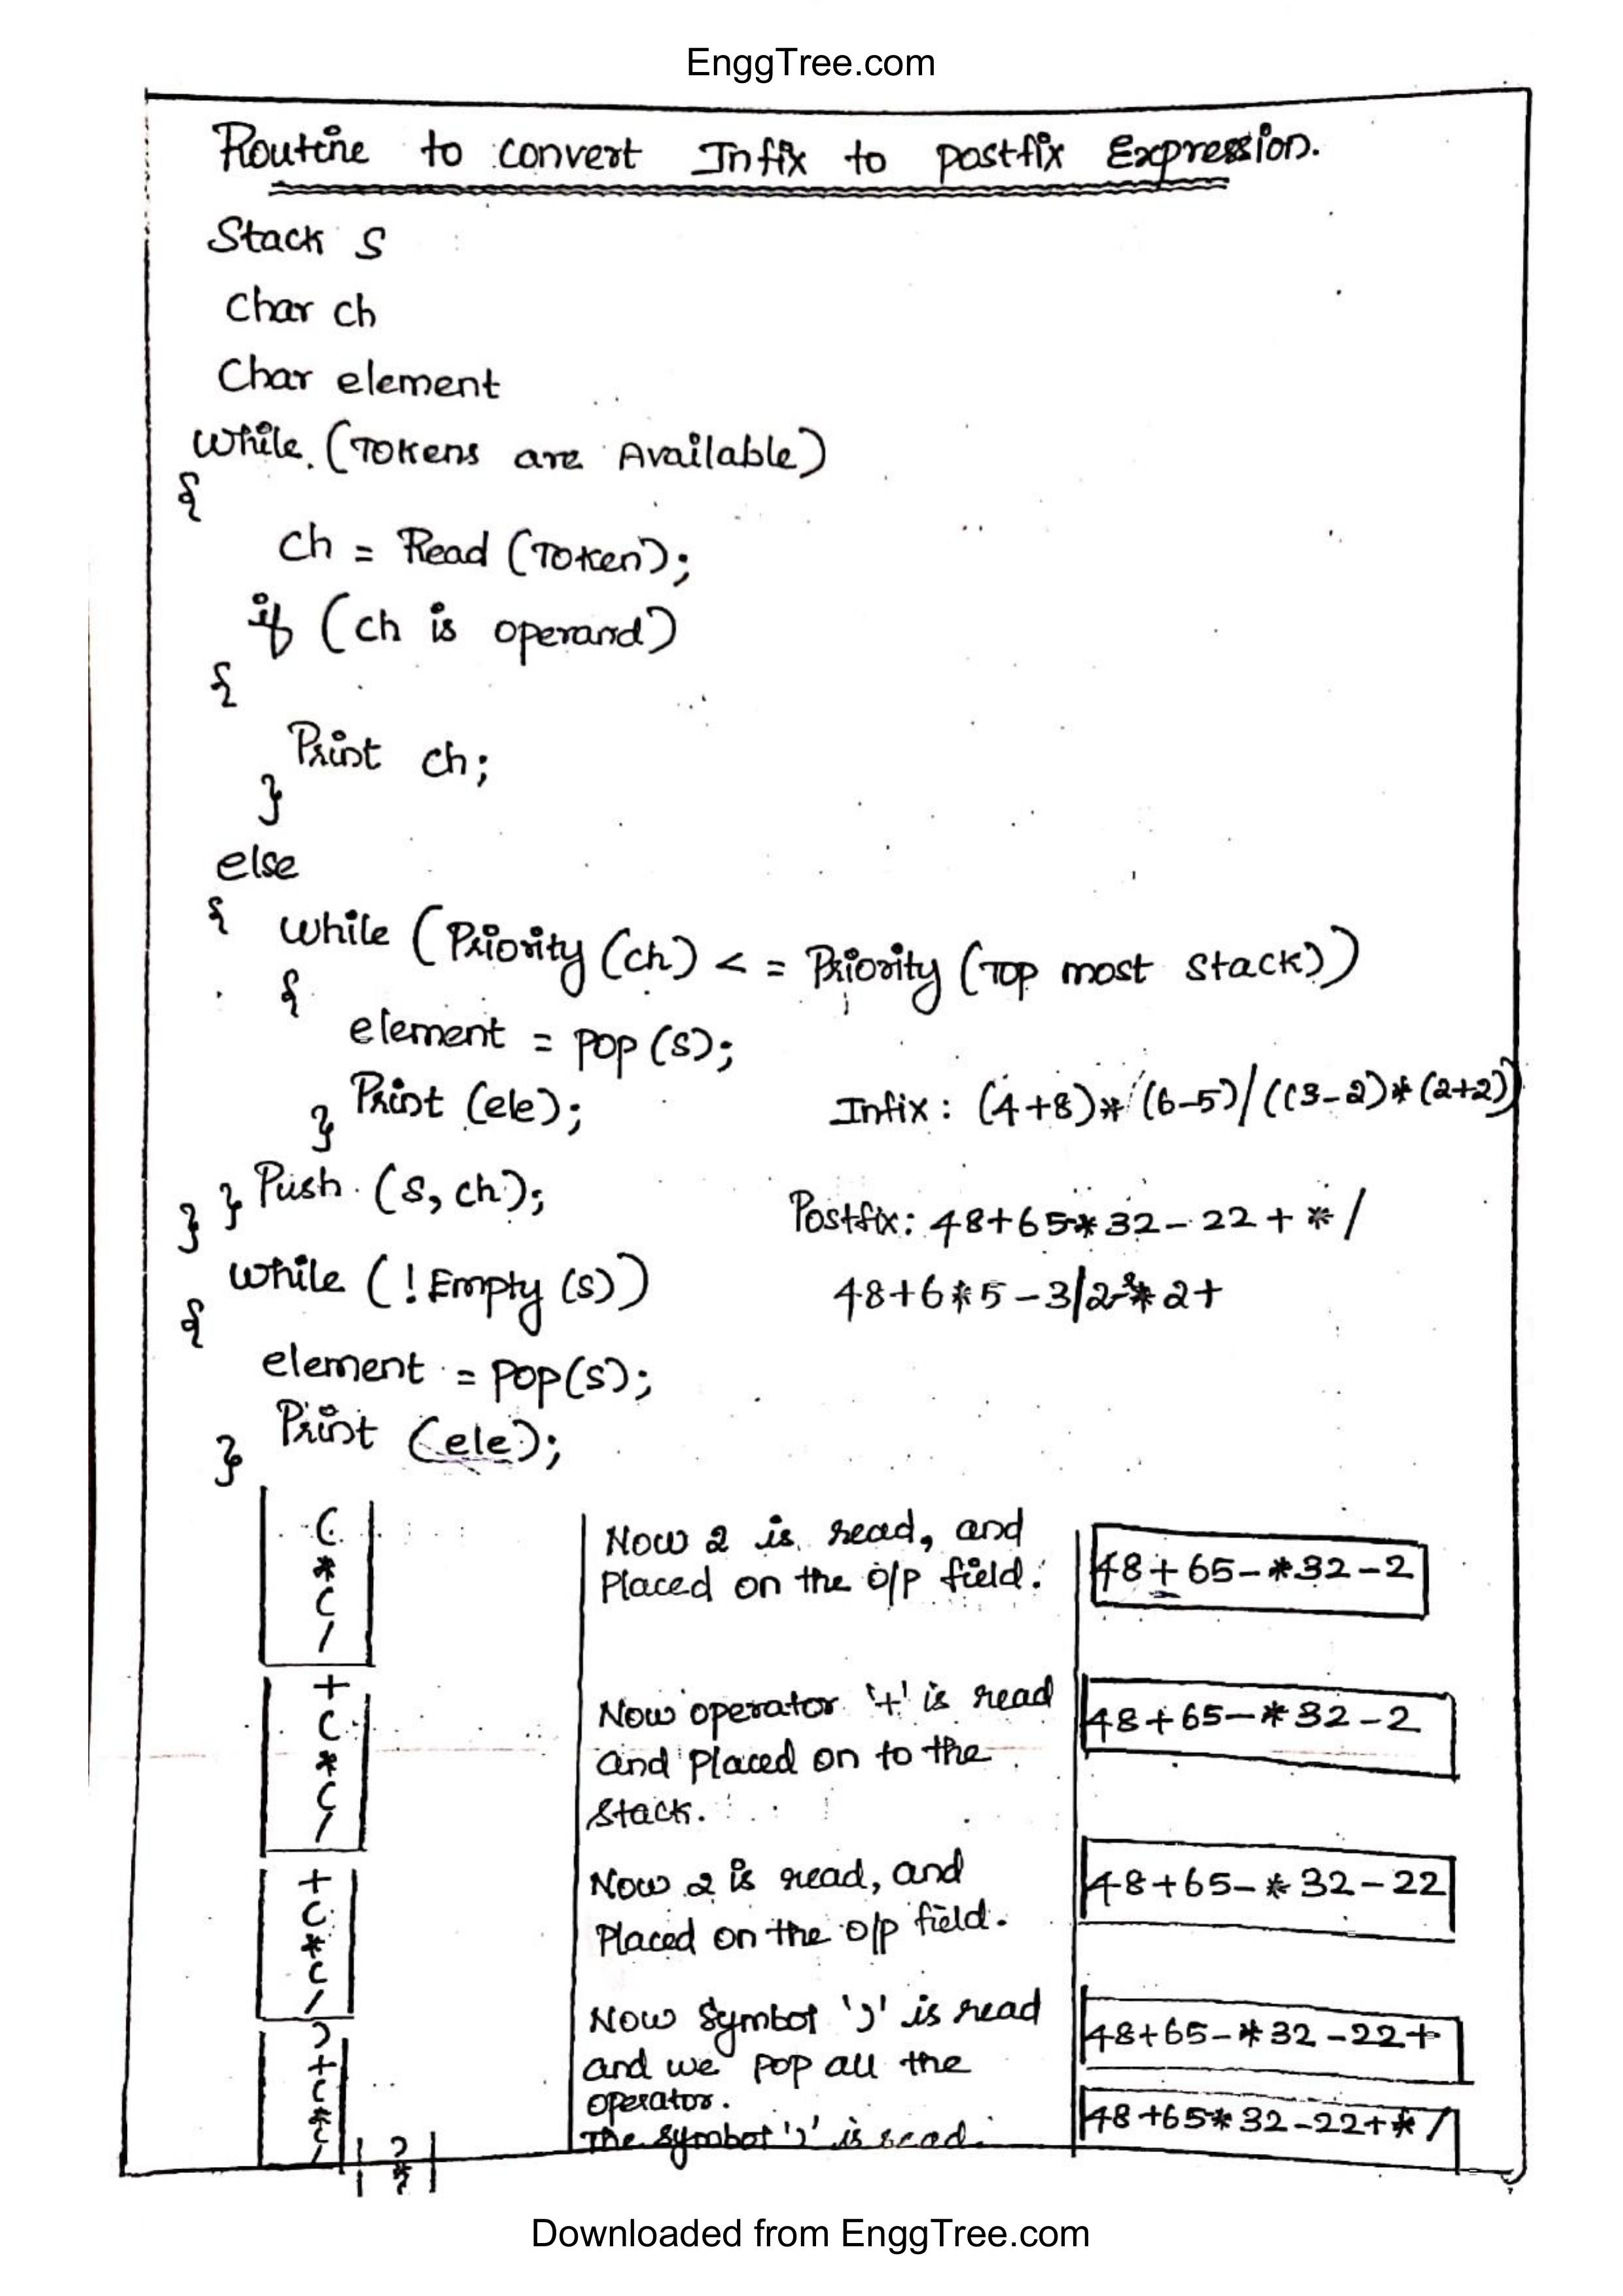 EnggTree.com
Routine to convert Infix to postfix Expression.
Stack S
Char ch
Char element
while (Tokens are Available)
{
ch = Read (Token);
if (ch is operand)
{
Print ch;
}
else
{ while (Priority (ch) < = Priority (Top most stack))
{
element = pop (s);
} Print (ele);
Infix : (4+8)*(6-5)/((3-2)*(2+2))
} } Push (s, ch);
Postfix: 48+65-*32-22+*/
while (!Empty (s))
48+6*5-3/2-*2+
{
element = pop(s);
} Print (ele);
(
*
(
/
Now 2 is read, and
Placed on the o/p field.
48+65-*32-2
+
(
*
(
/
Now operator '+' is read
and placed on to the
stack.
48+65-*32-2
+
(
*
(
/
Now 2 is read, and
Placed on the o/p field.
48+65-*32-22
)
+
(
*
(
/
Now Symbol ')' is read
and we pop all the
operator.
48+65-*32-22+
The symbol ')' is read.
48+65*32-22+*/
)
*
Downloaded from EnggTree.com